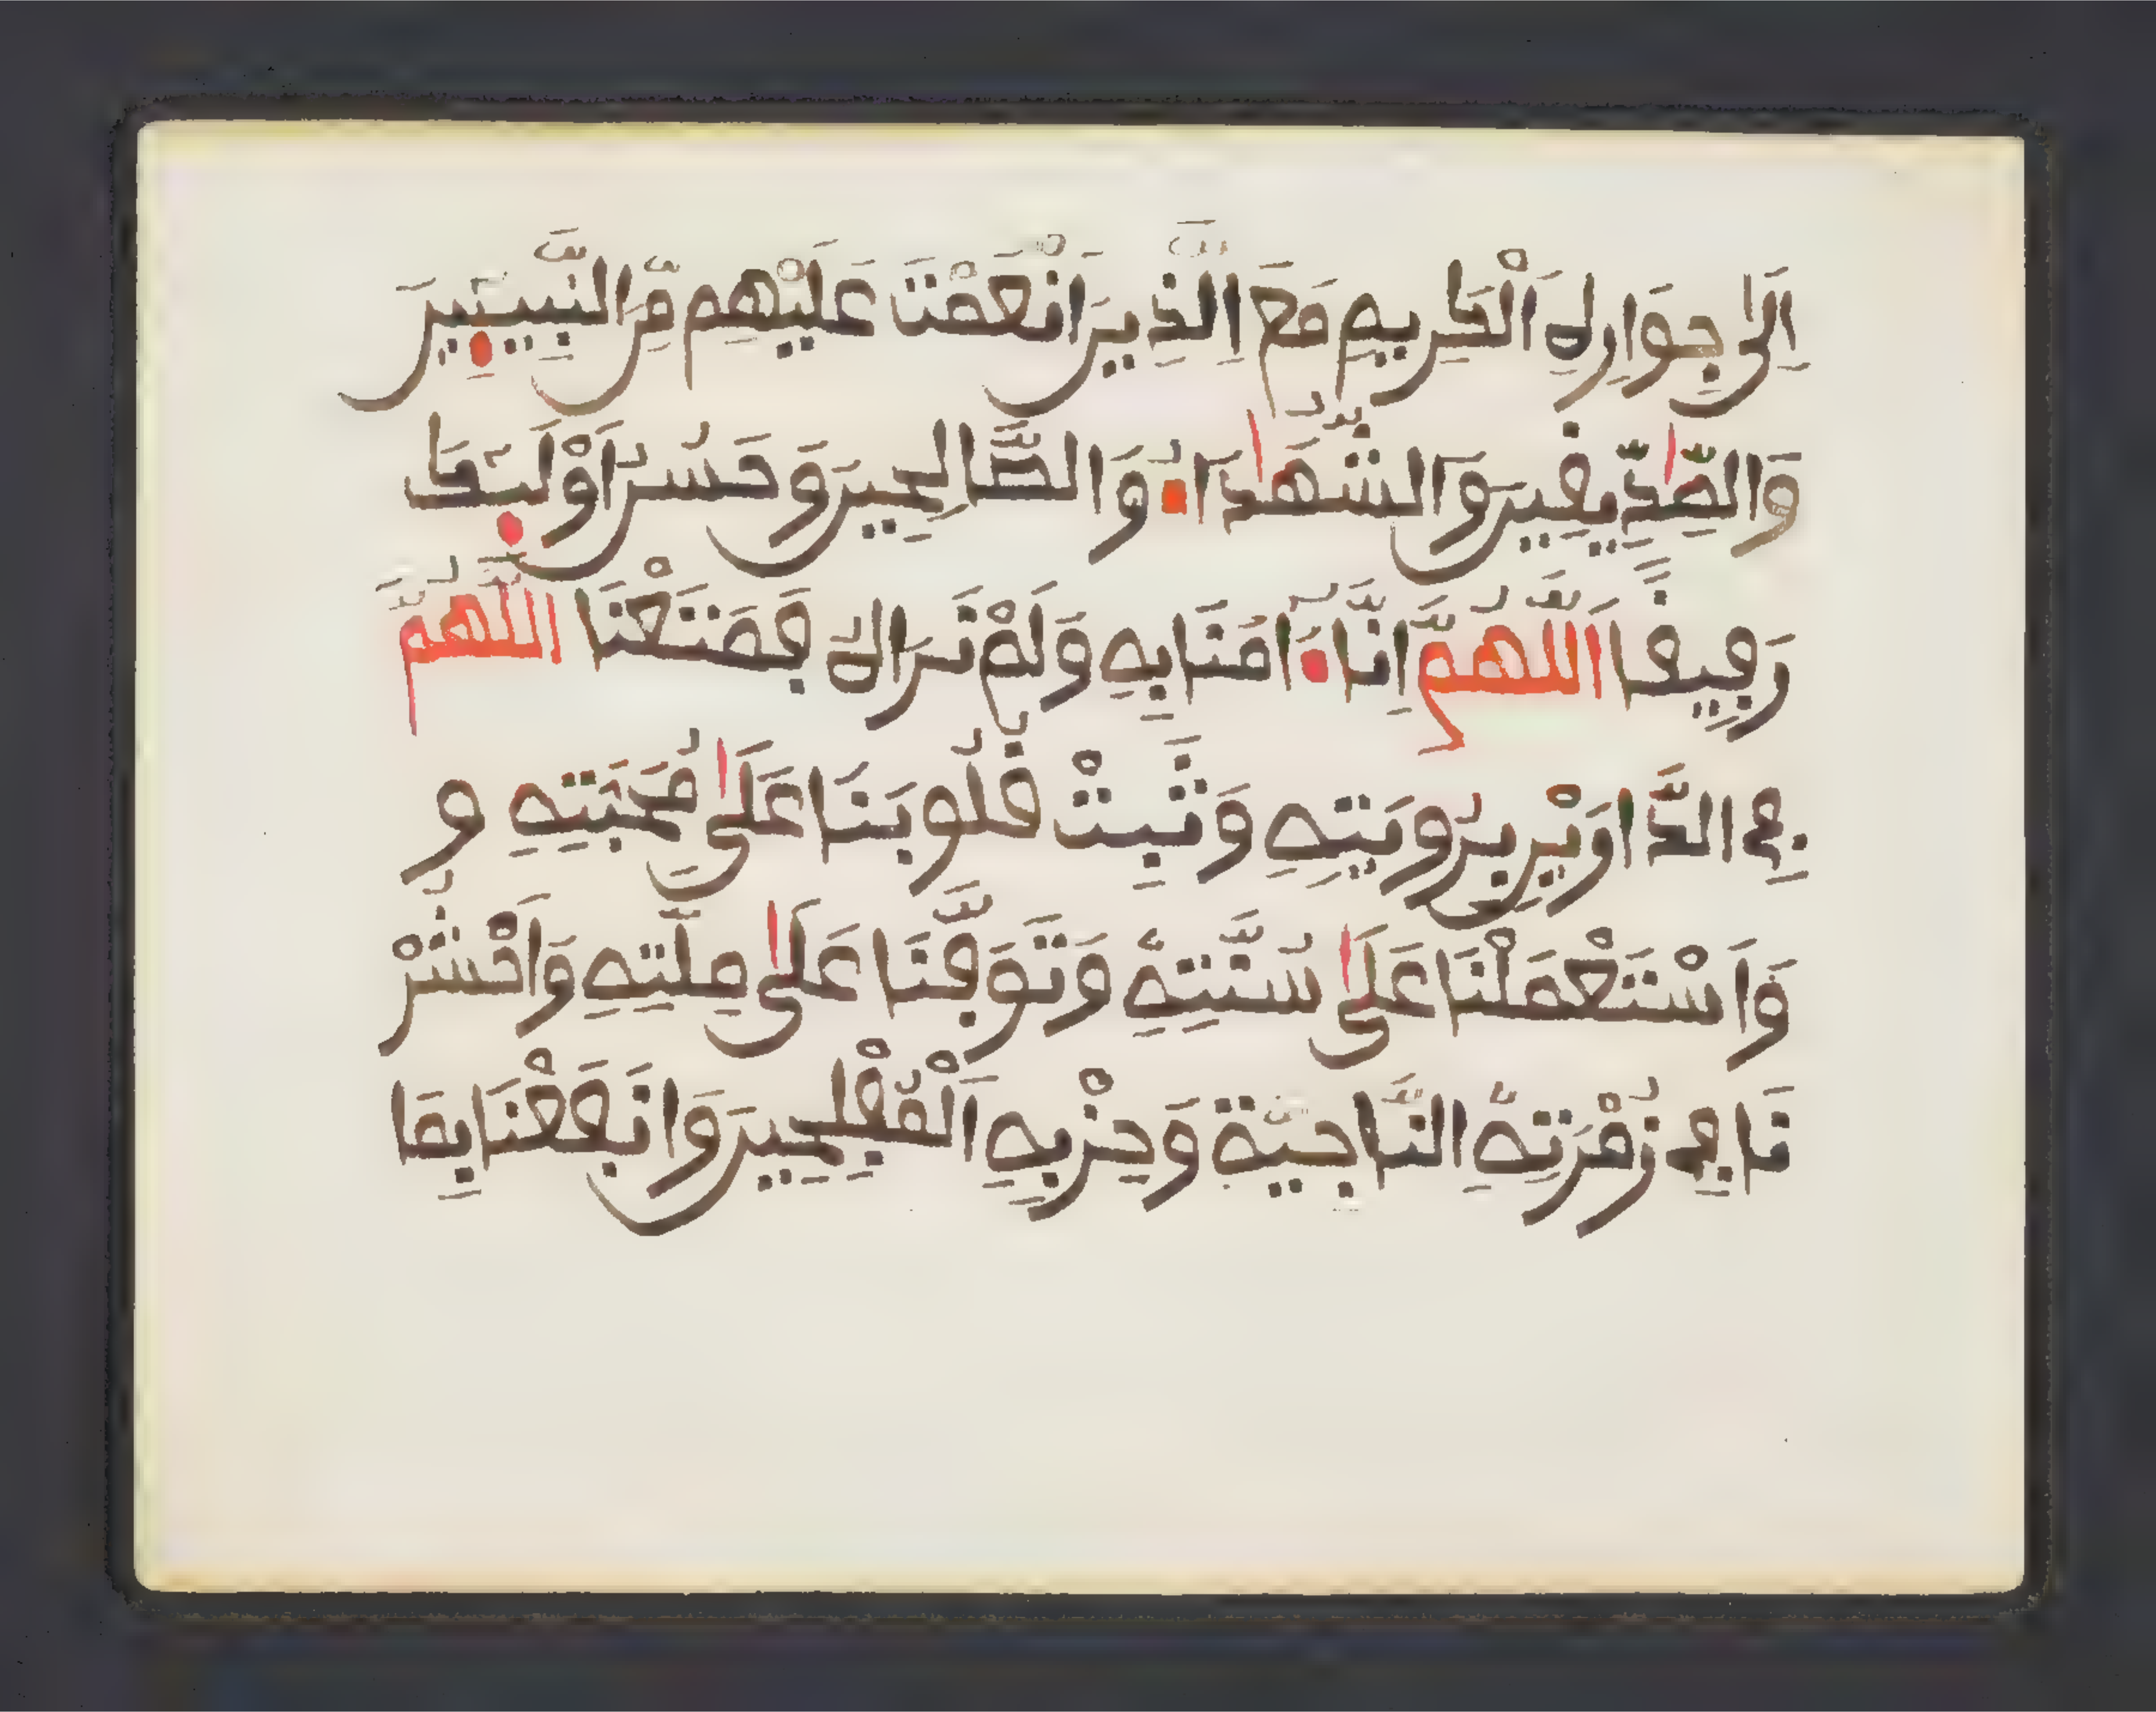 اِلَىٰ جِوَارِكَ اَلْكَرِيمِ مَعَ اِلَّذِينَ اَنْعَمْتَ عَلَيْهِم مِّنَ النَّبِيـِٕينَ
وَالصِّدِّيقِينَ وَالشُّهَدَاءِ وَالصَّالِحِينَ وَحَسُنَ اَوْلَـٰٓئِكَ
رَفِيقًا اَللَّهُمَّ اِنَّا ءَامَنَّا بِهِ وَلَمْ نَرَاكَ فَمَتَعْنَا اللَّهُمَّ
فِي الدَّارَيْنِ بِرُويَتِهِ وَثَبِّتْ قُلُوبَنَا عَلَىٰ مُحَبَتِهِ و
وَاسْتَعْمَلْنَا عَلَىٰ سُنَّتِهِ وَتَوَفَّنَا عَلَىٰ مِلَّتِهِ وَاحْشُرْ
نَا فِي زُمْرَتِهِ النَّاجِيَّة وَحِزْبِهِ اَلْمُفْلِحِينَ وَانَفَعْنَا بِمَا